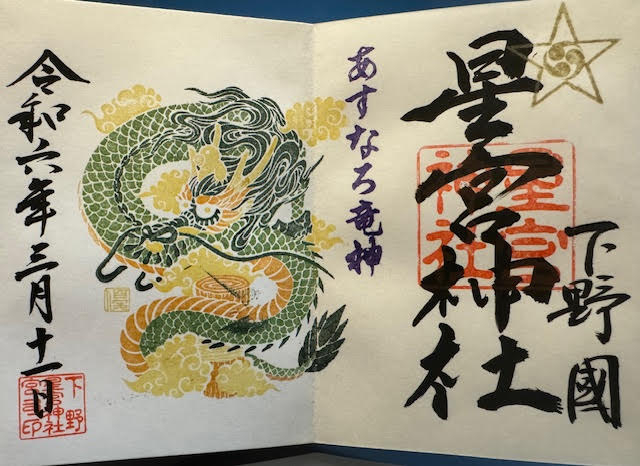 下野國
星宮神社
星宮
神社
あすなろ竜神
令和六年三月十一日
下野
星宮神社